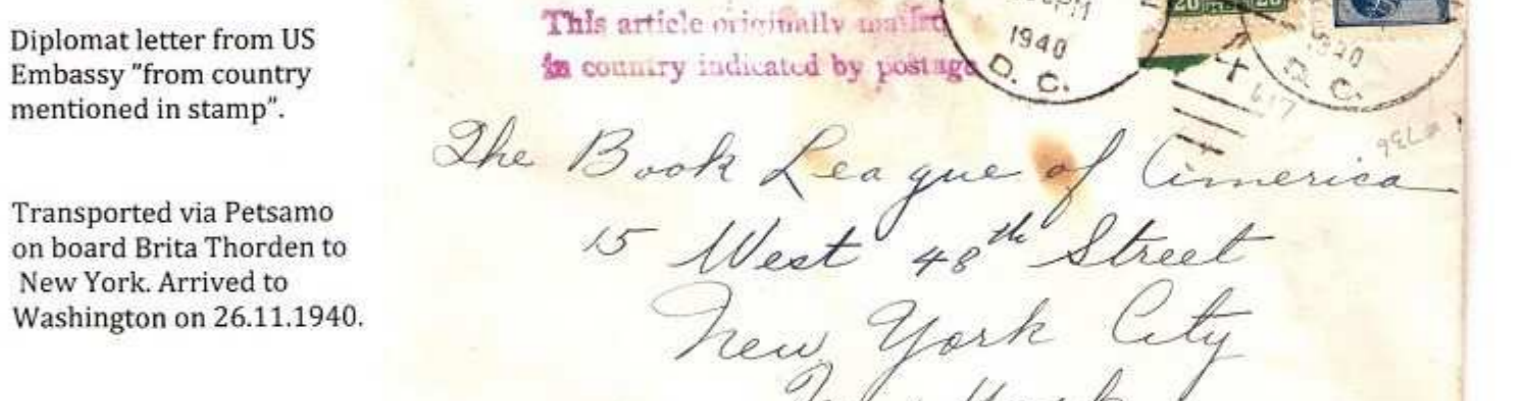 Diplomat letter from US
Embassy "from country
mentioned in stamp".
Transported via Petsamo
on board Brita Thorden to
New York. Arrived to
Washington on 26.11.1940.
This article originally mailed
in country indicated by postage
1940
D. C.
20 20
1940
D. C.
617
The Book League of America
15 West 48th Street
New York City